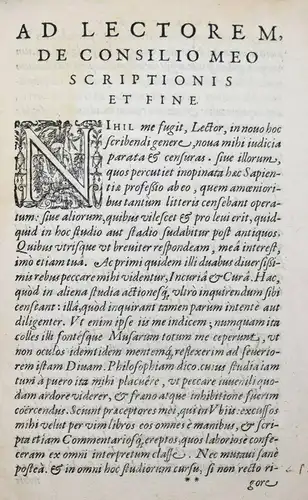 AD LECTOREM,
DE CONSILIO MEO
SCRIPTIONIS
ET FINE.
NIHIL me fugit, Lector, in nouo hoc
scribendi genere, noua mihi iudicia
parata & censuras. siue illorum,
quos percutiet inopinata hæc Sapien-
tiæ professio ab eo, quem amœniori-
bus tantium litteris censebant opera-
tum: siue aliorum, quibus vilescet & pro leui erit, quid-
quid in hoc studio aut stadio sudabitur post antiquos.
Quibus vtrisque vt breuiter respondeam, meâ interest,
imò etiam tuâ. Ac primi quidem illi duabus diuersißi-
mis rebus peccare mihi videntur, Incuriâ & Curâ. Hac,
quòd in aliena studia actionesq́, vltrò inquirendum sibi
censeant: illâ, quòd inquirant tamen parum intentè aut
diligenter. Vt enim ipse iis me indicem, numquam ita
colles illi fontésque Musarum totum me ceperunt, vt
non oculos identidem mentemq́, reflexerim ad seuerio-
rem istam Diuam. Philosophiam dico. cuius studia iam
tum à puero ita mihi placuêre, vt peccare iuuenili quo-
dam ardore viderer, & fræno atque inhibitione fuerim
coërcendus. Sciunt præceptores mei, qui in Vbiis excussos
mihi velut per vim libros eos omnes è manibus, & scri-
pta etiam Commentariosq́, ereptos, quos laboriosè confe-
ceram ex omni interpretum classe. Nec mutaui sanè
posteà: & in omni hoc studiorum cursu, si non recto ri-
** gore